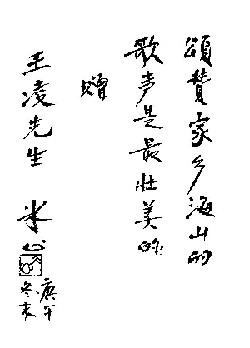 颂赞家乡海山的
歌声是最壮美的
赠
王凌先生
米心
庚午
冬末